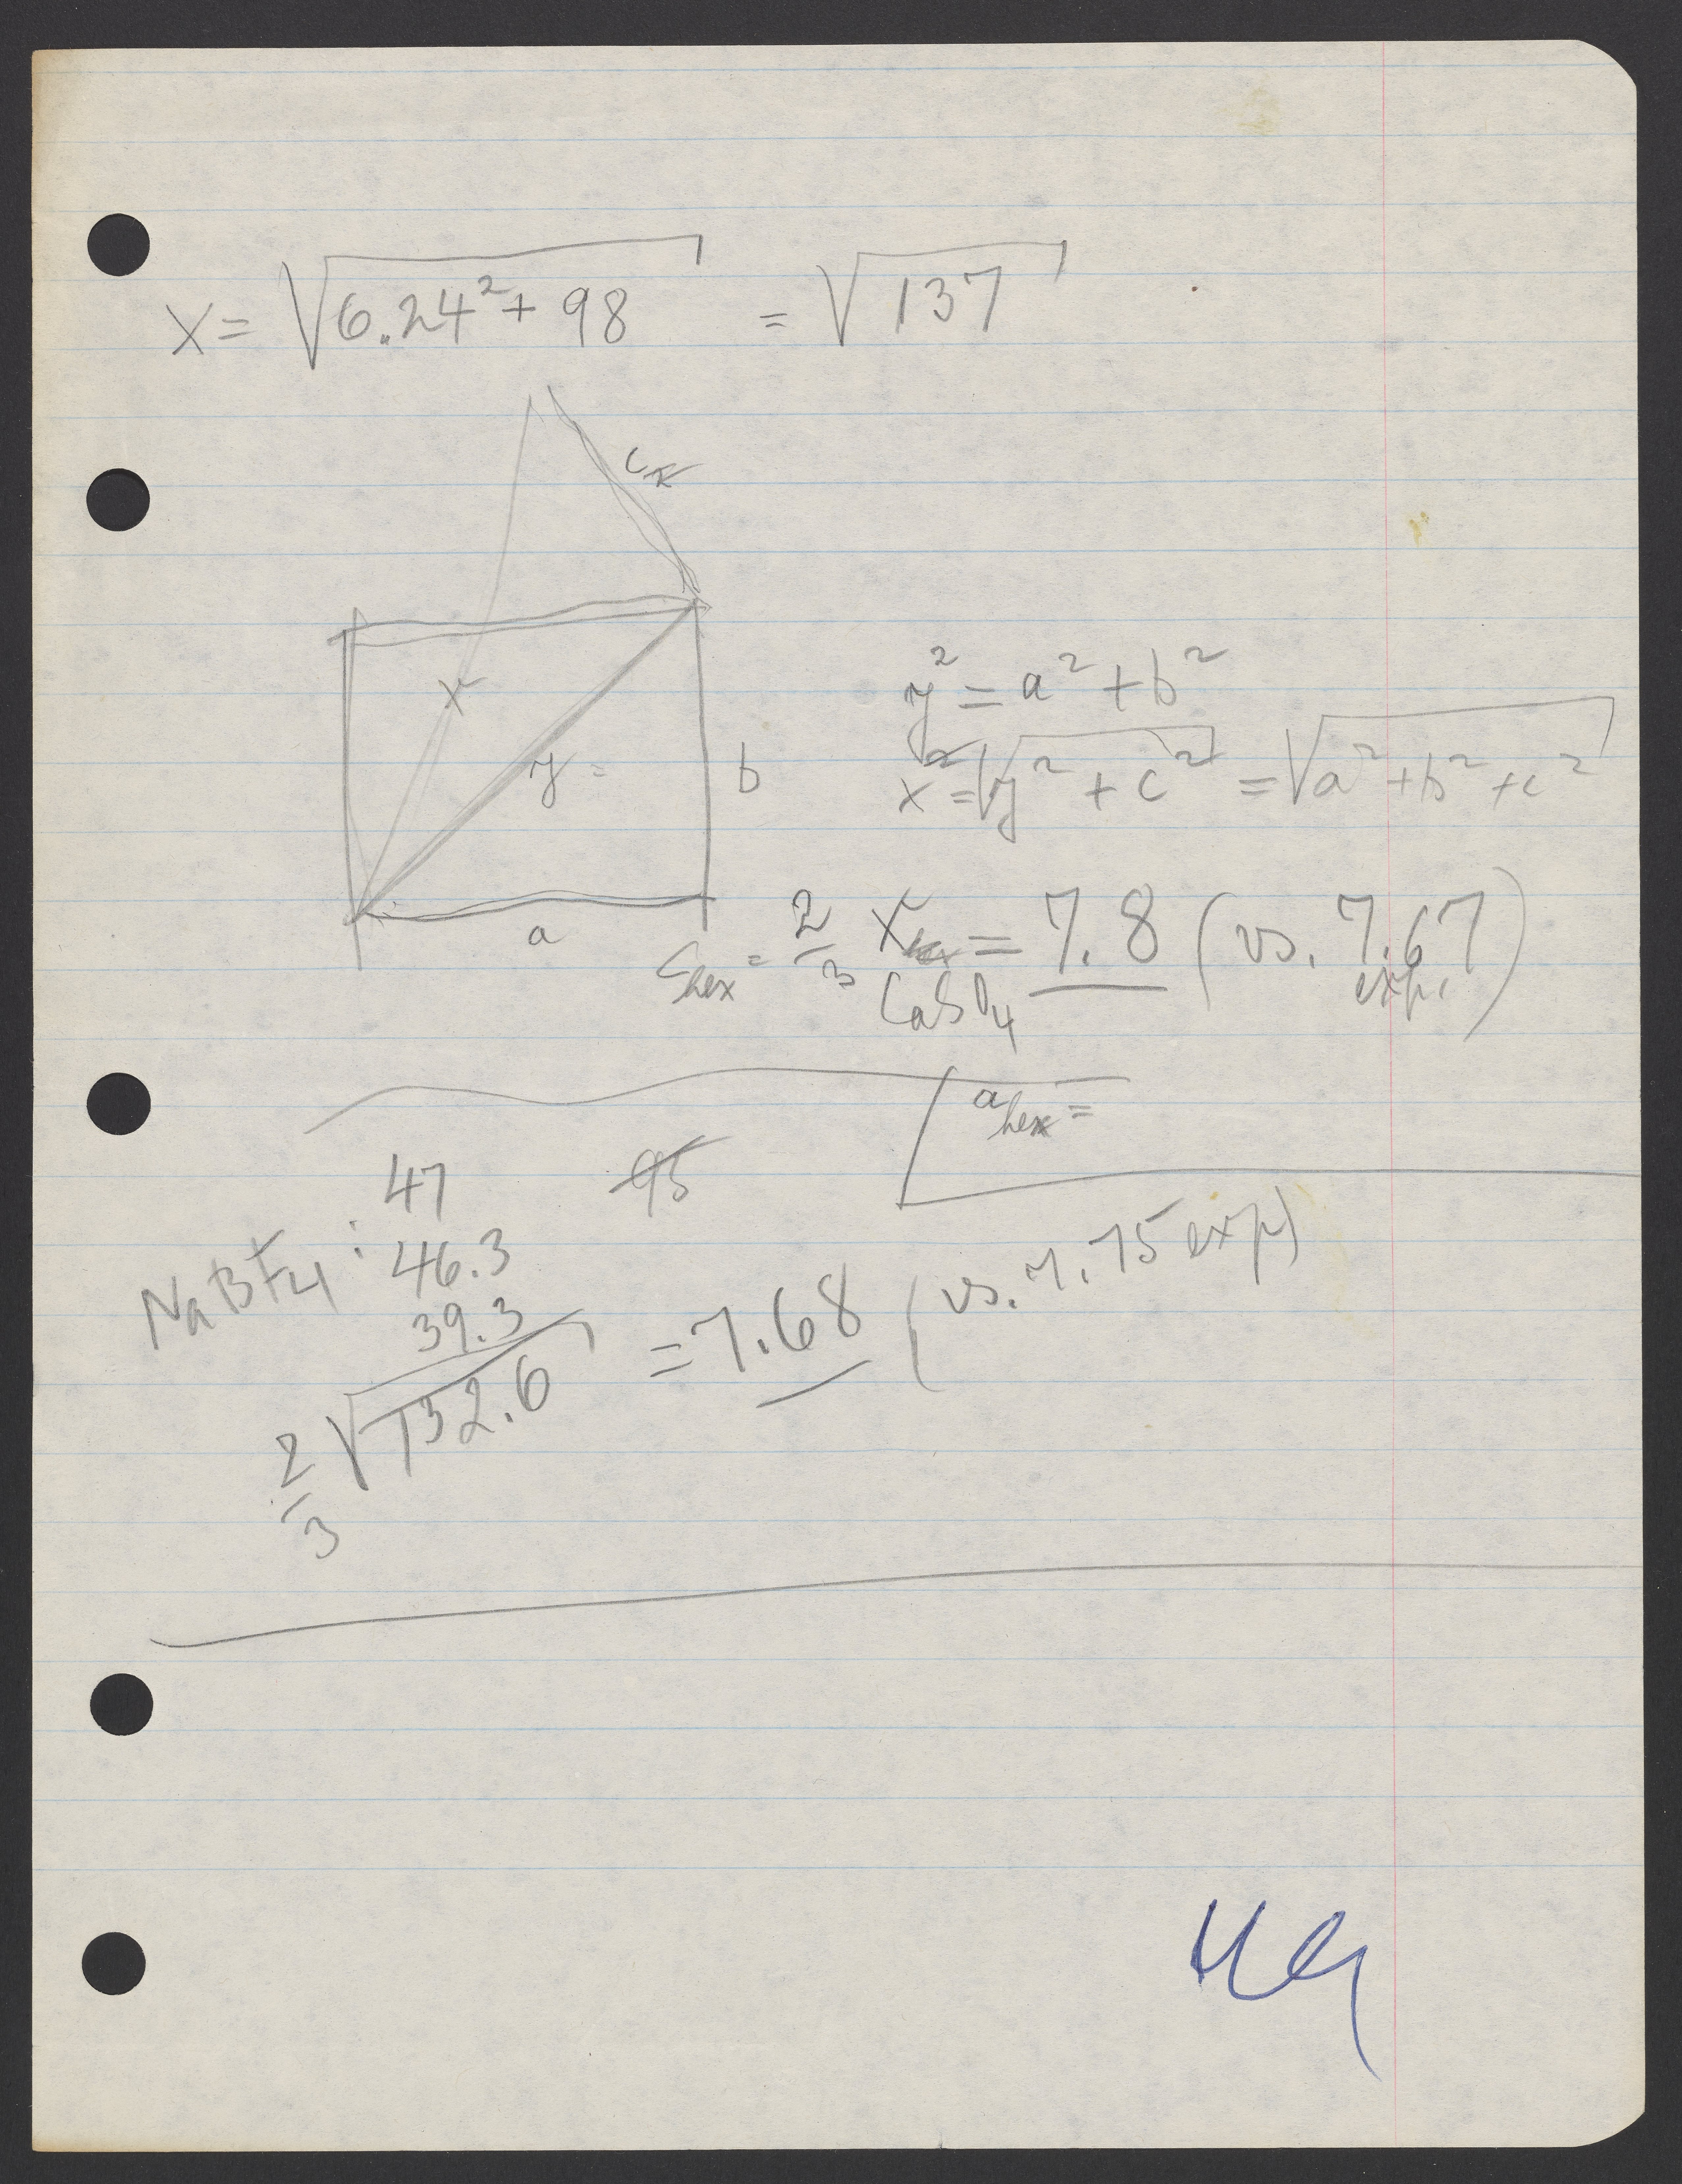 x = √6.24² + 98 = √137
c
x
y =
b
a
y² = a² + b²
x = √y² + c² = √a² + b² + c²
c hex = 2/3 x = 7.8 (vs. 7.67 exp.)
CaSO4
a hex =
47 95
NaBF4 : 46.3
39.3
2/3 √132.6 = 7.68 (vs. 7.75 exp)